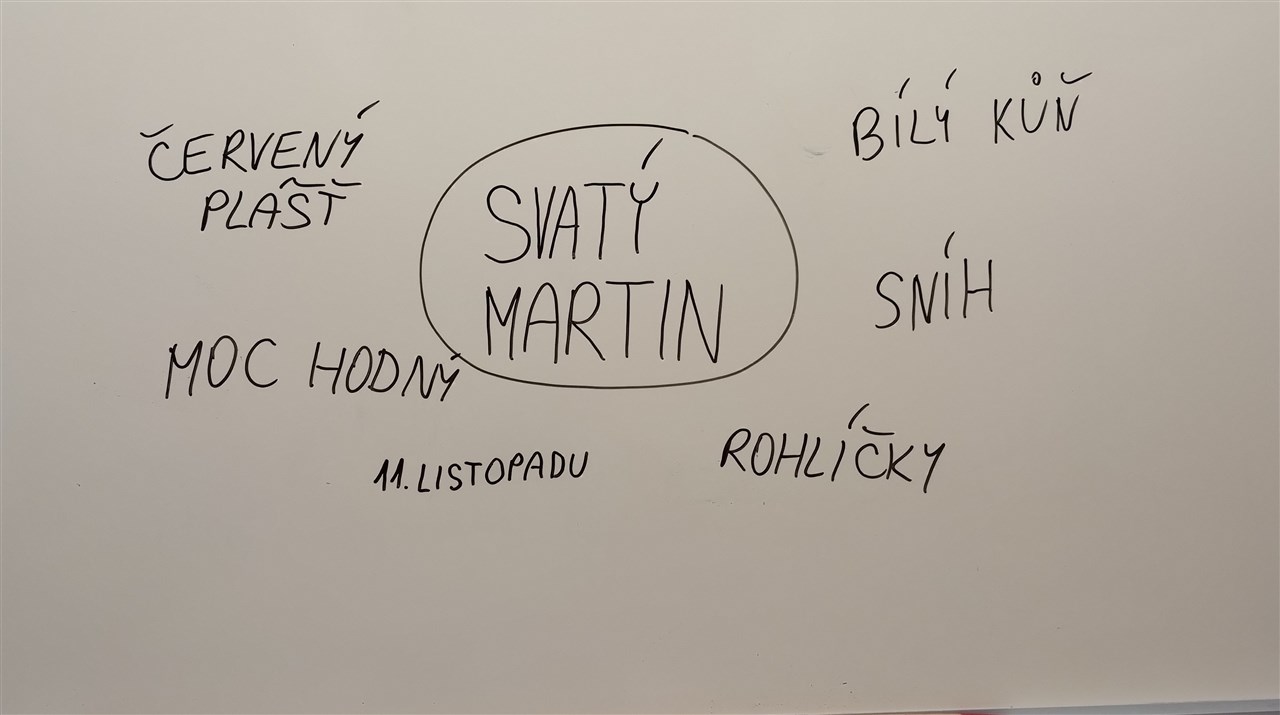 ČERVENÝ
PLÁŠŤ
SVATÝ
MARTIN
BÍLÝ KŮŇ
SNÍH
MOC HODNÝ
11. LISTOPADU
ROHLÍČKY